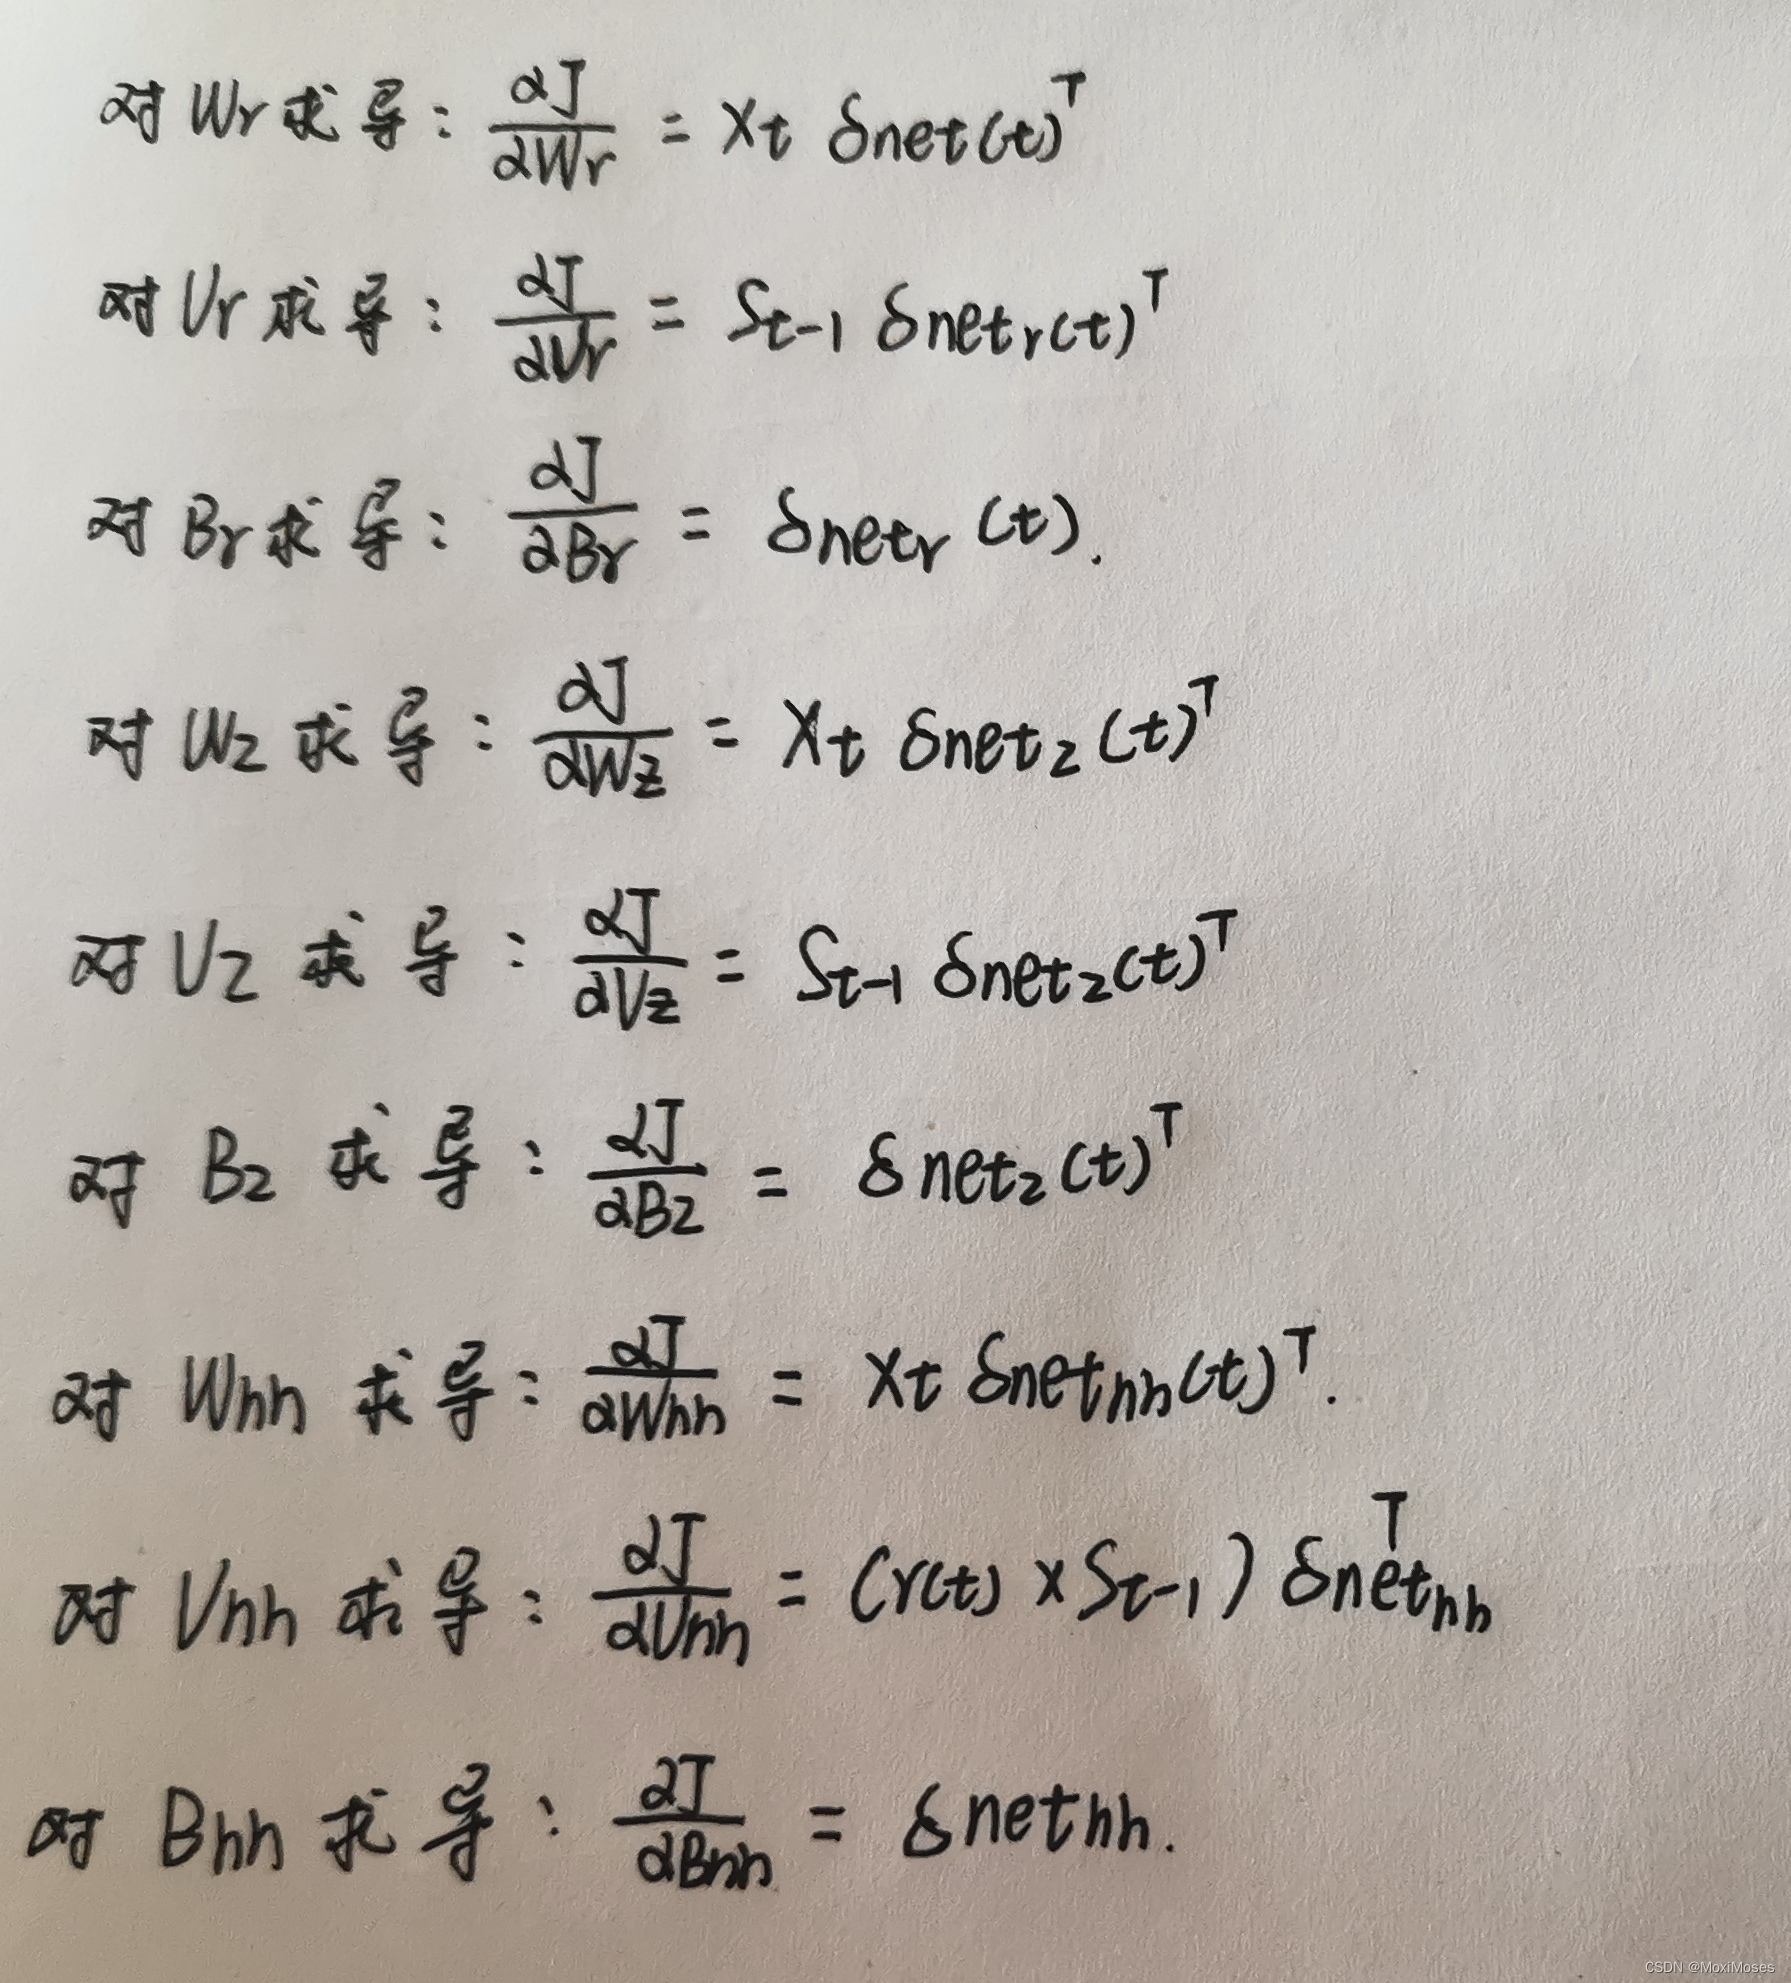 对 Wr 求导：∂J/∂Wr = Xt δnet(t)^T
对 Ur 求导：∂J/∂Ur = St-1 δnetr(t)^T
对 Br 求导：∂J/∂Br = δnetr (t).
对 Wz 求导：∂J/∂Wz = Xt δnetz (t)^T
对 Uz 求导：∂J/∂Uz = St-1 δnetz(t)^T
对 Bz 求导：∂J/∂Bz = δnetz(t)^T
对 Whh 求导：∂J/∂Whh = Xt δnethh(t)^T.
对 Uhh 求导：∂J/∂Uhh = (r(t) × St-1) δnethh^T
对 Bhh 求导：∂J/∂Bhh = δnethh.
CSDN @MoxiMoses